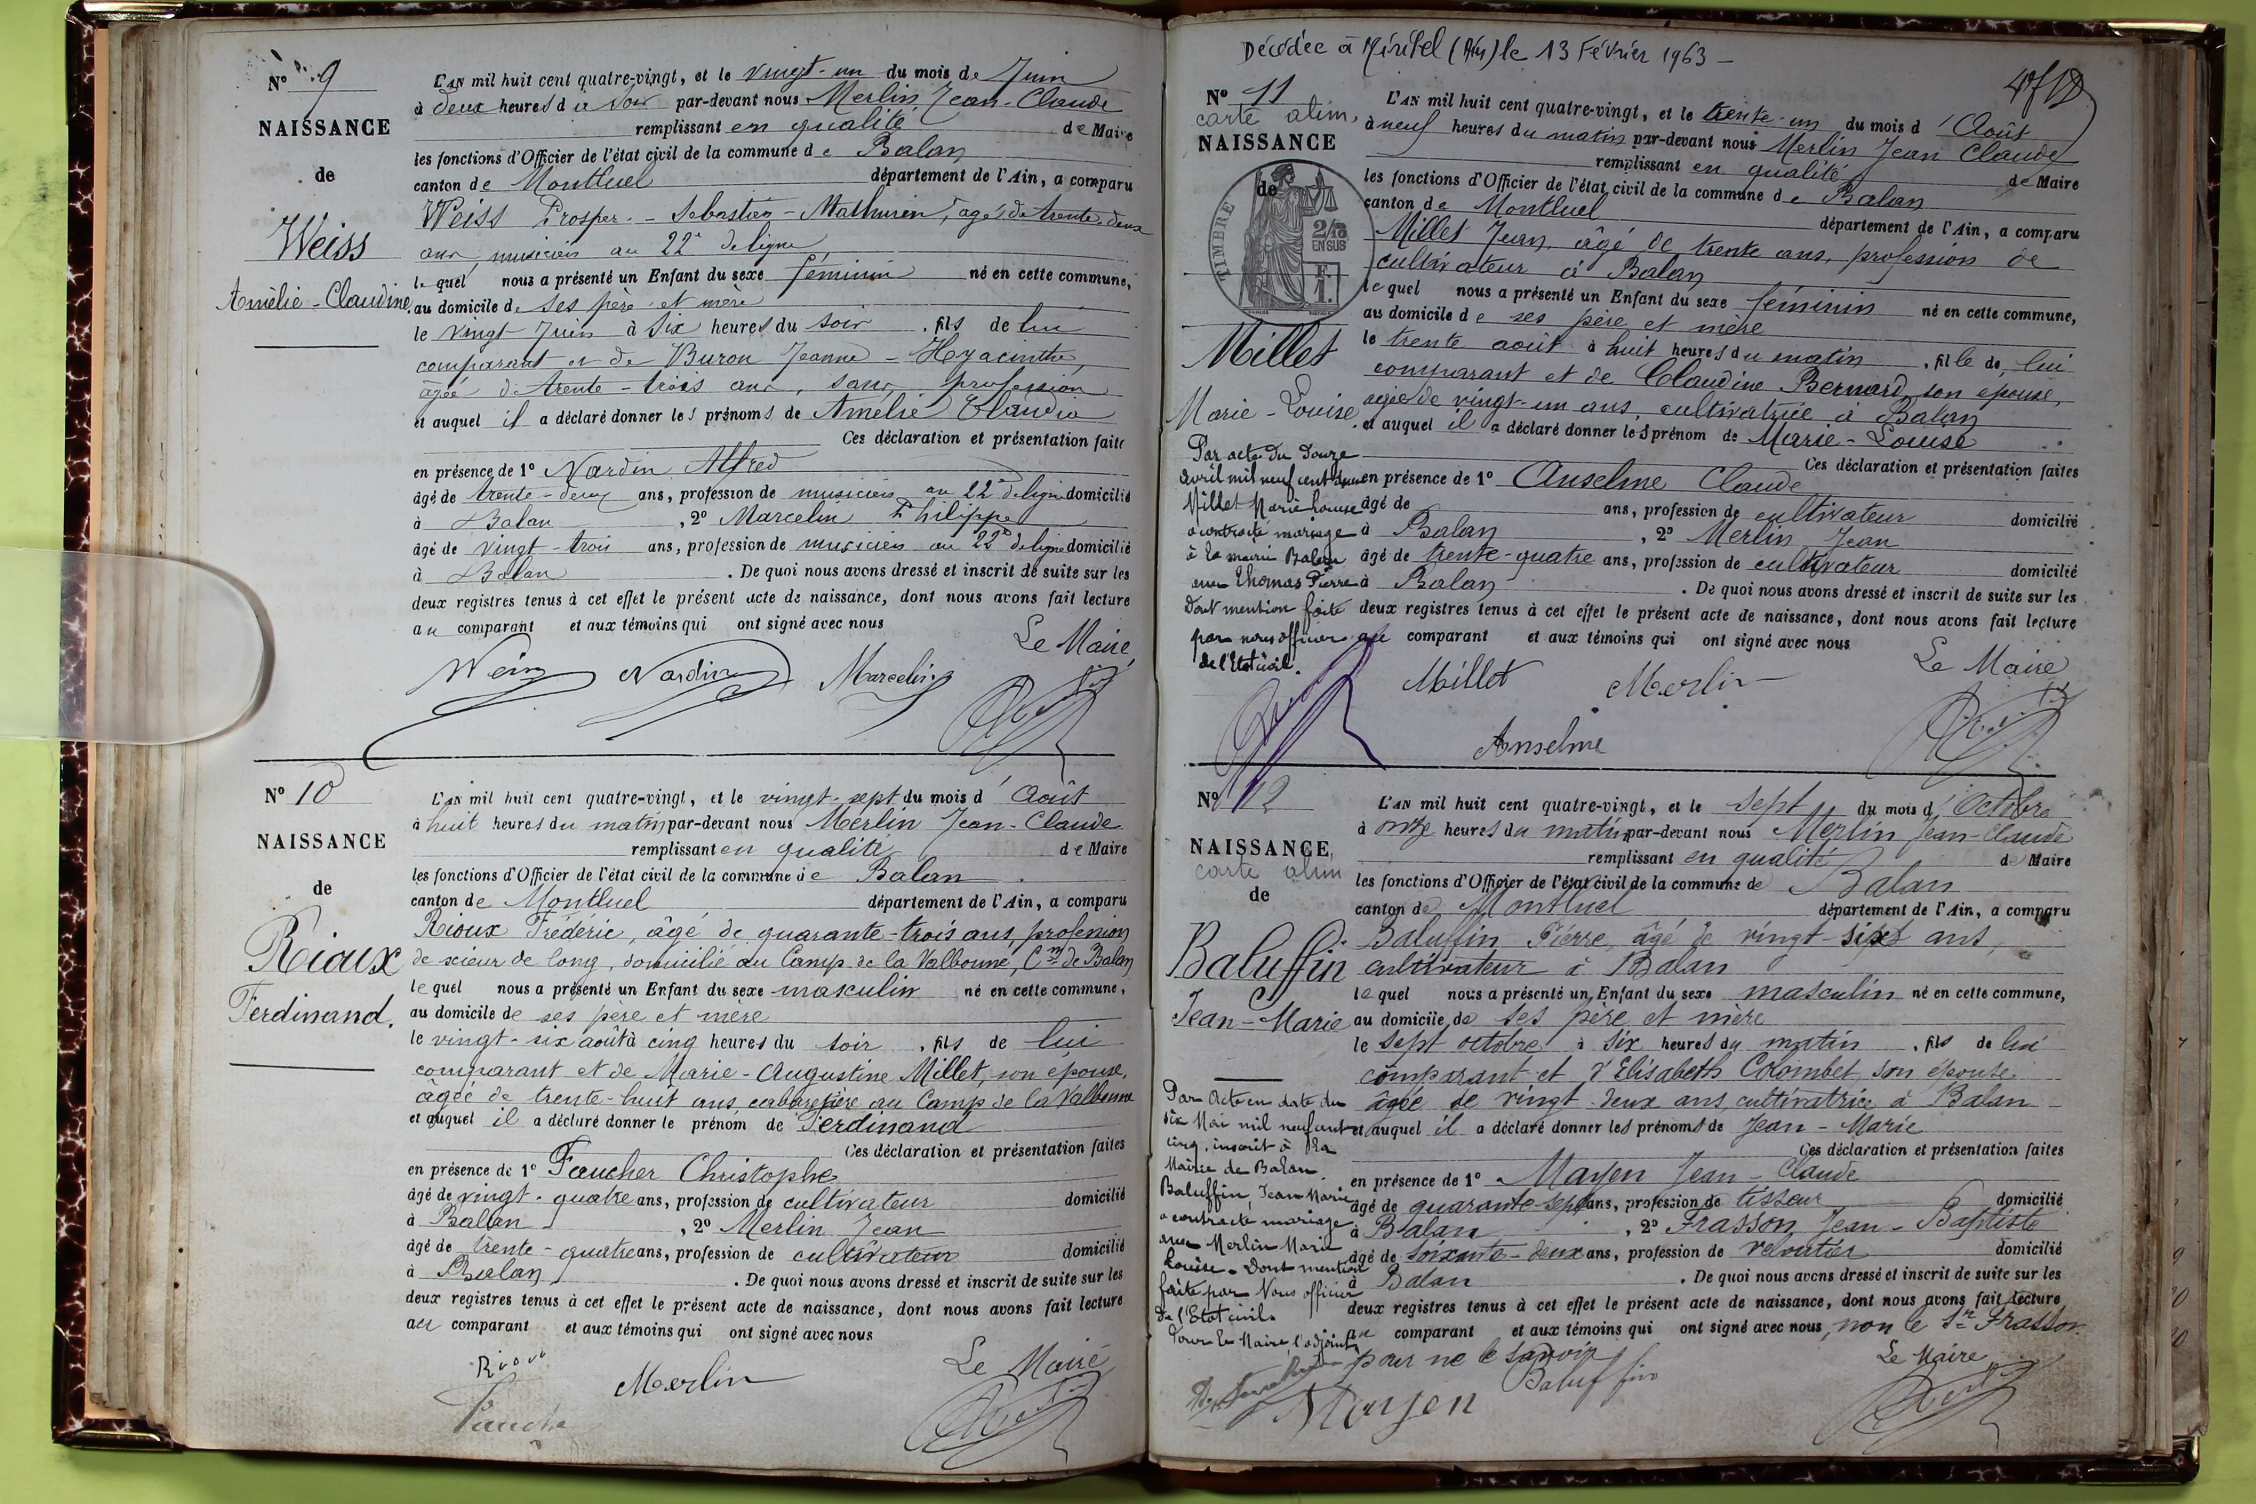 N° 9
NAISSANCE
de
Weiss
Amélie - Claudine.
L'AN mil huit cent quatre-vingt, et le vingt-un du mois de Juin
à deux heures du soir par-devant nous Merlin Jean-Claude
remplissant en qualité de Maire
les fonctions d'Officier de l'état civil de la commune de Balan
canton de Montluel département de l'Ain, a comparu
Weiss Prosper - Sebastien - Mathurin, agé de trente-deux
ans, musicien au 22e de ligne
lequel nous a présenté un Enfant du sexe féminin né en cette commune,
au domicile de ses père et mère
le vingt Juin à six heures du soir, fils de lui
comparant et de Buron Jeanne - Hyacinthe,
âgée de trente-trois ans, sans profession
et auquel il a déclaré donner les prénoms de Amélie Claudine
Ces déclaration et présentation faite
en présence de 1° Nardin Alfred
âgé de trente-deux ans, profession de musicien au 22e de ligne domicilié
à Balan, 2° Marcelin Philippe
âgé de vingt-trois ans, profession de musicien au 22e de ligne domicilié
à Balan. De quoi nous avons dressé et inscrit de suite sur les
deux registres tenus à cet effet le présent acte de naissance, dont nous avons fait lecture
au comparant et aux témoins qui ont signé avec nous
Le Maire
Weiss Nardin Marcelin
N° 10
NAISSANCE
de
Rioux
Ferdinand.
L'AN mil huit cent quatre-vingt, et le vingt-sept du mois d'Août
à huit heures du matin par-devant nous Merlin Jean-Claude
remplissant en qualité de Maire
les fonctions d'Officier de l'état civil de la commune de Balan
canton de Montluel département de l'Ain, a comparu
Rioux Frédéric, âgé de quarante-trois ans, profession
de scieur de long, domicilié au Camp de la Valbonne, Cne de Balan
lequel nous a présenté un Enfant du sexe masculin né en cette commune,
au domicile de ses père et mère
le vingt-six août à cinq heures du soir, fils de lui
comparant et de Marie-Augustine Millet, son épouse,
âgée de trente-huit ans, cabaretière au Camp de la Valbonne
et auquel il a déclaré donner le prénom de Ferdinand
Ces déclaration et présentation faites
en présence de 1° Faucher Christophe
âgé de vingt-quatre ans, profession de cultivateur domicilié
à Balan, 2° Merlin Jean
âgé de trente-quatre ans, profession de cultivateur domicilié
à Balan. De quoi nous avons dressé et inscrit de suite sur les
deux registres tenus à cet effet le présent acte de naissance, dont nous avons fait lecture
au comparant et aux témoins qui ont signé avec nous
Le Maire
Rioux Merlin
Fauche
Décédée à Miribel (Ain) le 13 Février 1963 -
N° 11
carte alim.
NAISSANCE
de
TIMBRE
2/10
EN SUS
F.
1.
Millet
Marie - Louise
Par acte du douze
avril mil neuf cent
Millet Marie Louise
a contracté mariage
à la mairie Balan
avec Thomas Pierre
dont mention faite
par nous officier
de l'Etat civil.
L'AN mil huit cent quatre-vingt, et le trente-un du mois d'Août
à neuf heures du matin par-devant nous Merlin Jean Claude
remplissant en qualité de Maire
les fonctions d'Officier de l'état civil de la commune de Balan
canton de Montluel département de l'Ain, a comparu
Millet Jean, âgé de trente ans, profession de
cultivateur à Balan
lequel nous a présenté un Enfant du sexe féminin né en cette commune,
au domicile de ses père et mère
le trente août à huit heures du matin, fille de lui
comparant et de Claudine Bernard, son épouse,
agée de vingt-un ans, cultivatrice à Balan
et auquel il a déclaré donner les prénom de Marie-Louise
Ces déclaration et présentation faites
en présence de 1° Anselme Claude
âgé de ans, profession de cultivateur domicilié
à Balan, 2° Merlin Jean
âgé de trente-quatre ans, profession de cultivateur domicilié
à Balan. De quoi nous avons dressé et inscrit de suite sur les
deux registres tenus à cet effet le présent acte de naissance, dont nous avons fait lecture
au comparant et aux témoins qui ont signé avec nous
Le Maire
Millet Merlin
Anselme
N° 12
NAISSANCE
carte alim
de
Baluffin
Jean-Marie
Par Acte en date du
six Mai mil neuf cent
cinq, inscrit à la
Mairie de Balan
Baluffin, Jean Marie
a contracté mariage
avec Merlin Marie
Louise. Dont mention
faite par Nous officier
de l'Etat civil.
Pour le Maire, l'adjoint
L'AN mil huit cent quatre-vingt, et le sept du mois d'Octobre
à onze heures du matin par-devant nous Merlin Jean-Claude
remplissant en qualité de Maire
les fonctions d'Officier de l'état civil de la commune de Balan
canton de Montluel département de l'Ain, a comparu
Baluffin Pierre, âgé de vingt-six ans,
cultivateur à Balan
lequel nous a présenté un Enfant du sexe masculin né en cette commune,
au domicile de ses père et mère
le sept octobre à six heures du matin, fils de lui
comparant et d'Elisabeth Colombet, son épouse
âgée de vingt-deux ans, cultivatrice à Balan
et auquel il a déclaré donner les prénoms de Jean-Marie
Ces déclaration et présentation faites
en présence de 1° Mayen Jean-Claude
âgé de quarante-sept ans, profession de tisseur domicilié
à Balan, 2° Frasson Jean-Baptiste
âgé de soixante-deux ans, profession de veloutier domicilié
à Balan. De quoi nous avons dressé et inscrit de suite sur les
deux registres tenus à cet effet le présent acte de naissance, dont nous avons fait lecture
au comparant et aux témoins qui ont signé avec nous, non le Sr Frasson
pour ne le savoir
Le Maire
Mayen Baluffin